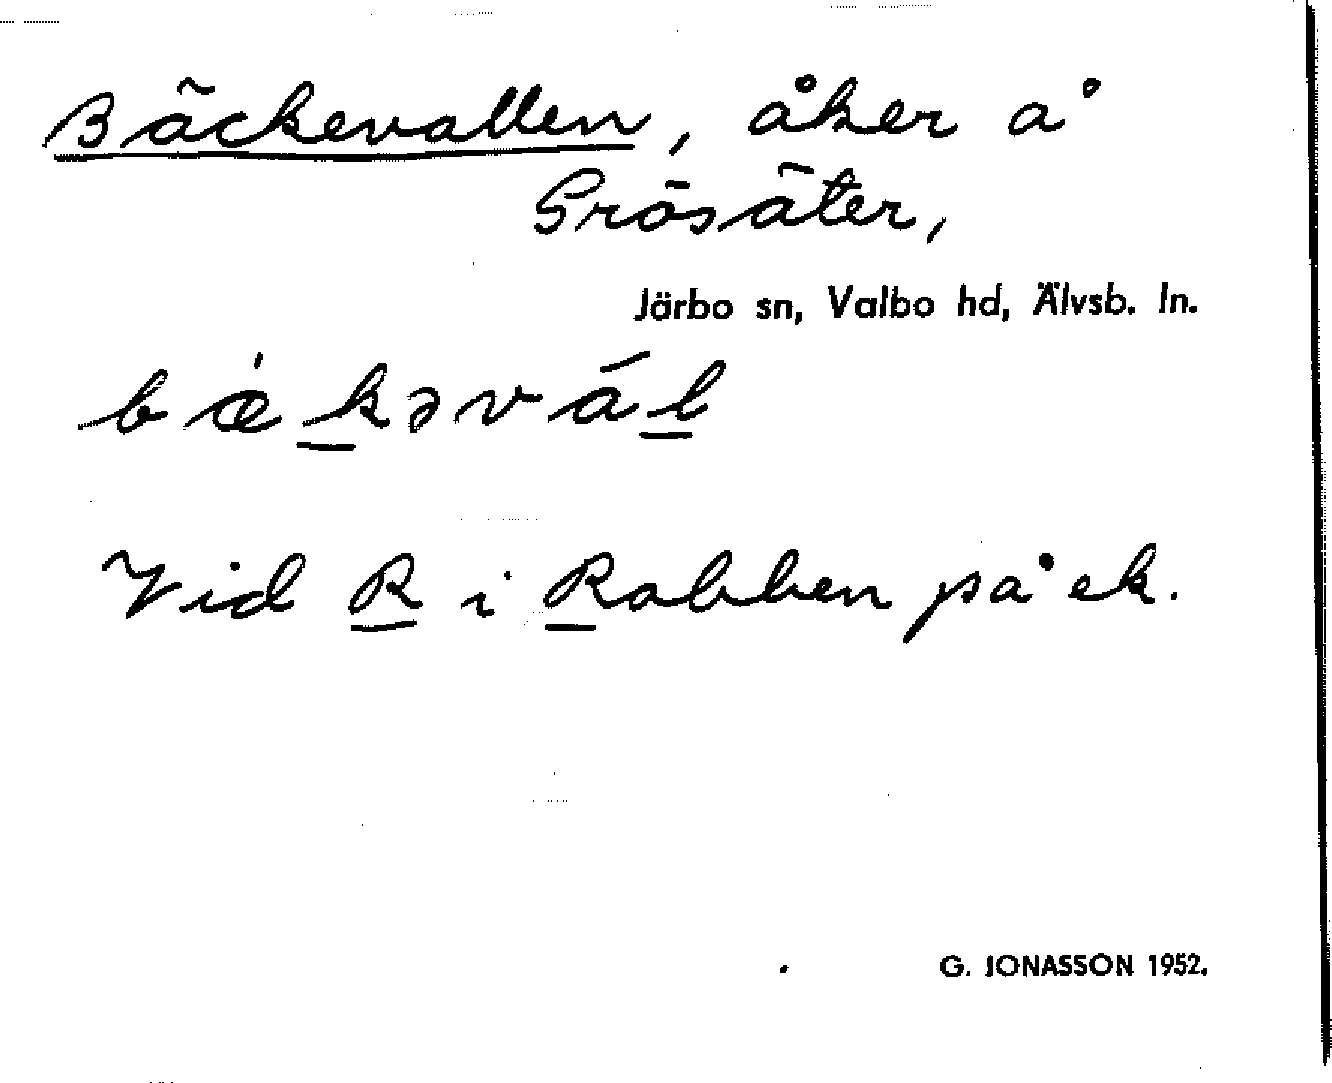 Bäckevallen, åker å
Grösäter,
Järbo sn, Valbo hd, Älvsb. ln.
bǽkəvál
Vid R i Rabben på ek.
G. JONASSON 1952.